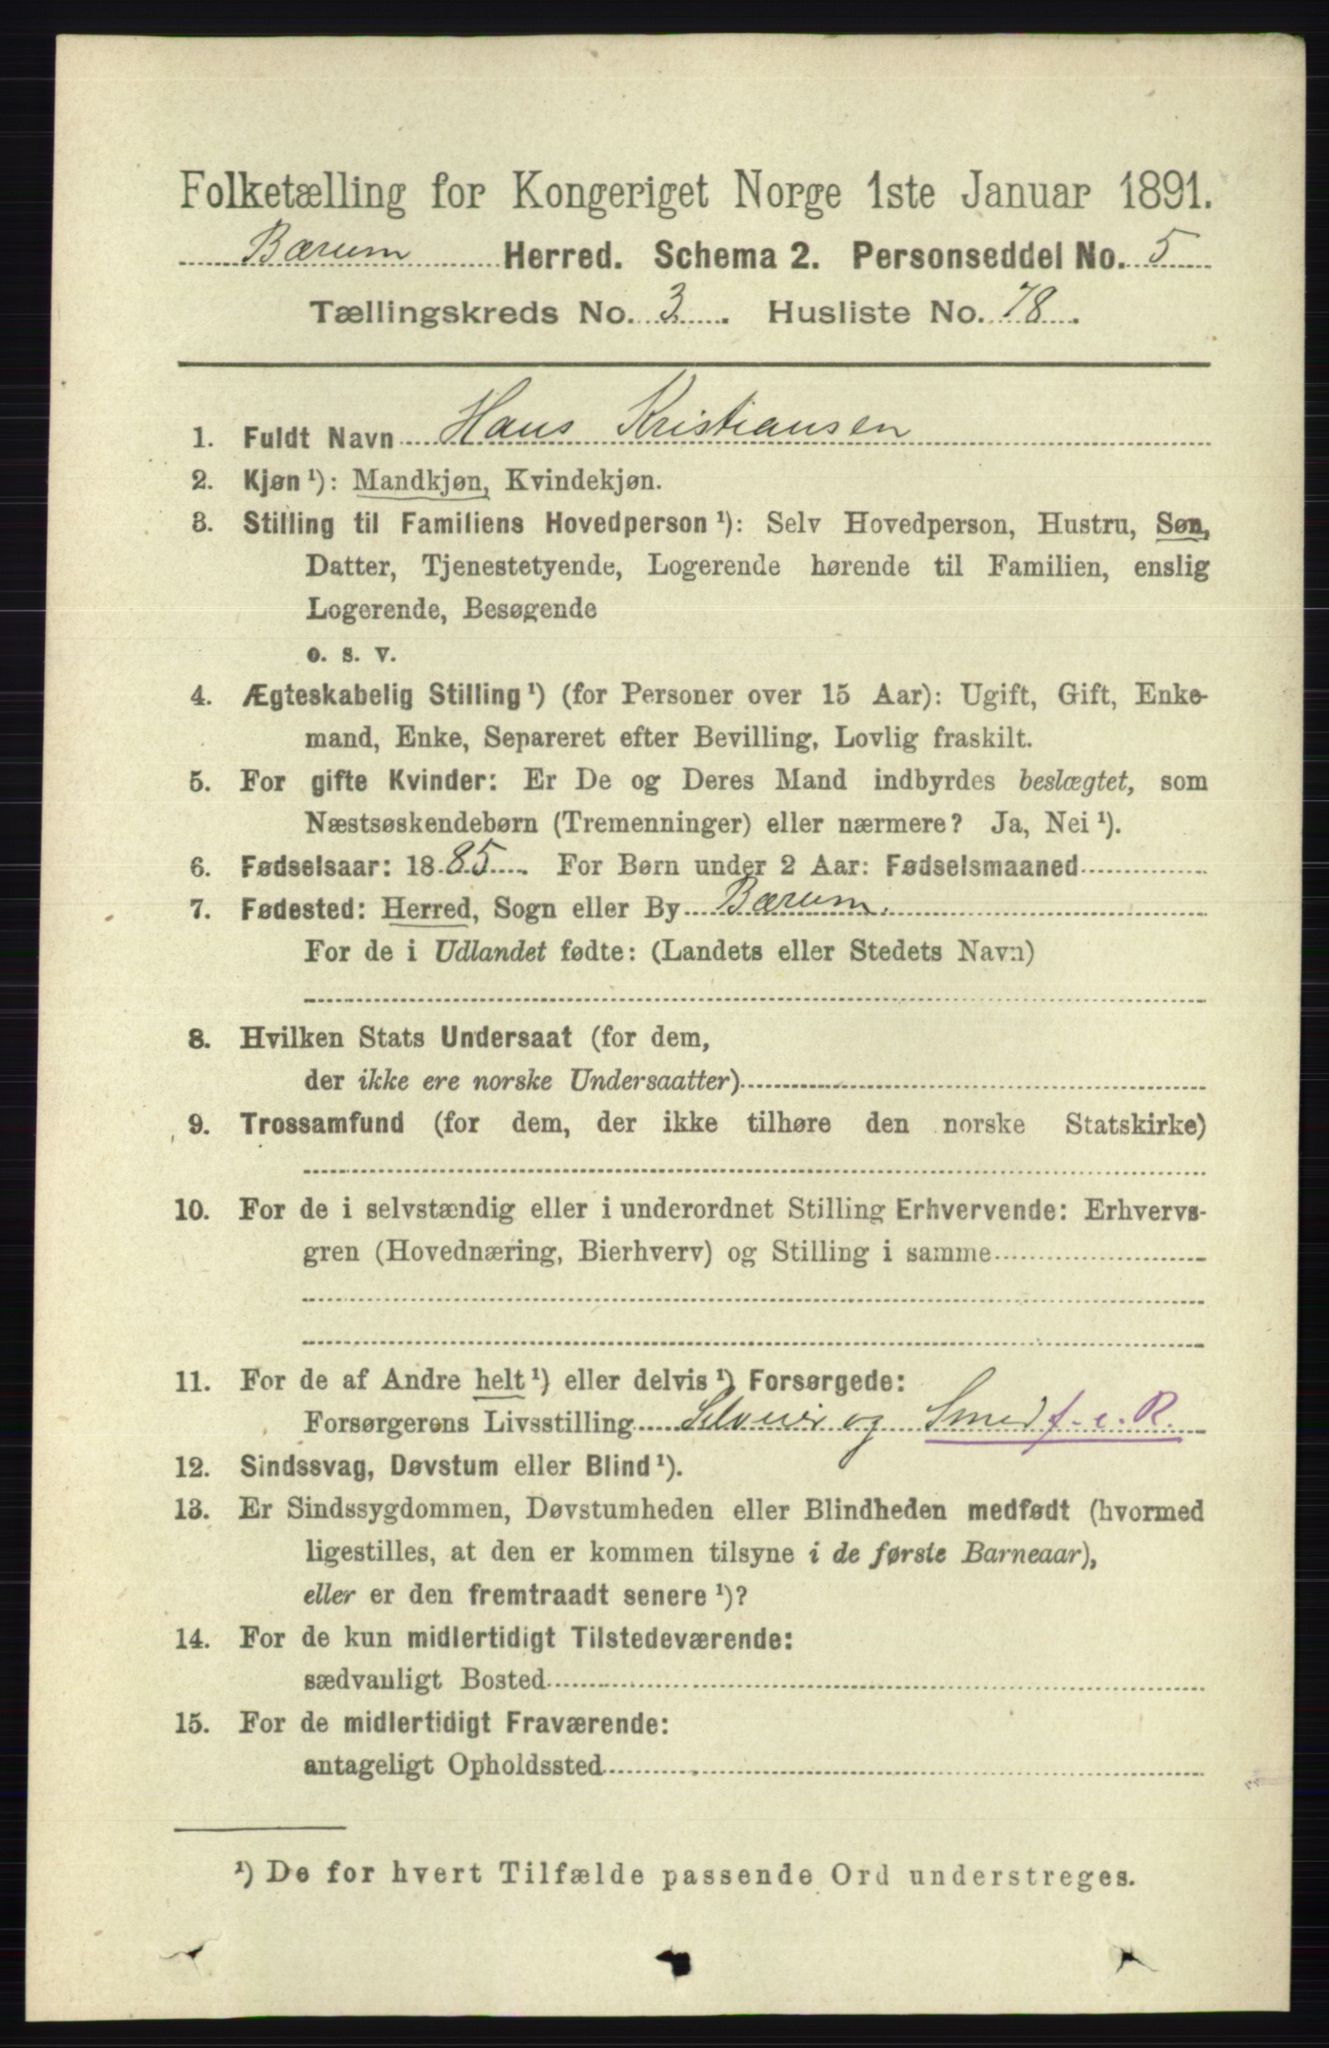 Folketælling for Kongeriget Norge 1ste Januar 1891.
Bærum Herred. Schema 2. Personseddel No. 5
Tællingskreds No. 3. Husliste No. 78.
1. Fuldt Navn Hans Kristiansen
2. Kjøn ¹): Mandkjøn, Kvindekjøn.
3. Stilling til Familiens Hovedperson ¹): Selv Hovedperson, Hustru, Søn,
Datter, Tjenestetyende, Logerende hørende til Familien, enslig
Logerende, Besøgende
o. s. v.
4. Ægteskabelig Stilling ¹) (for Personer over 15 Aar): Ugift, Gift, Enke-
mand, Enke, Separeret efter Bevilling, Lovlig fraskilt.
5. For gifte Kvinder: Er De og Deres Mand indbyrdes beslægtet, som
Næstsøskendebørn (Tremenninger) eller nærmere? Ja, Nei ¹).
6. Fødselsaar: 1885. For Børn under 2 Aar: Fødselsmaaned
7. Fødested: Herred, Sogn eller By Bærum.
For de i Udlandet fødte: (Landets eller Stedets Navn)
8. Hvilken Stats Undersaat (for dem,
der ikke ere norske Undersaatter)
9. Trossamfund (for dem, der ikke tilhøre den norske Statskirke)
10. For de i selvstændig eller i underordnet Stilling Erhvervende: Erhvervs-
gren (Hovednæring, Bierhverv) og Stilling i samme
11. For de af Andre helt ¹) eller delvis ¹) Forsørgede:
Forsørgerens Livsstilling Selveier og Smed f. e. R.
12. Sindssvag, Døvstum eller Blind ¹).
13. Er Sindssygdommen, Døvstumheden eller Blindheden medfødt (hvormed
ligestilles, at den er kommen tilsyne i de første Barneaar),
eller er den fremtraadt senere ¹)?
14. For de kun midlertidigt Tilstedeværende:
sædvanligt Bosted
15. For de midlertidigt Fraværende:
antageligt Opholdssted
¹) De for hvert Tilfælde passende Ord understreges.